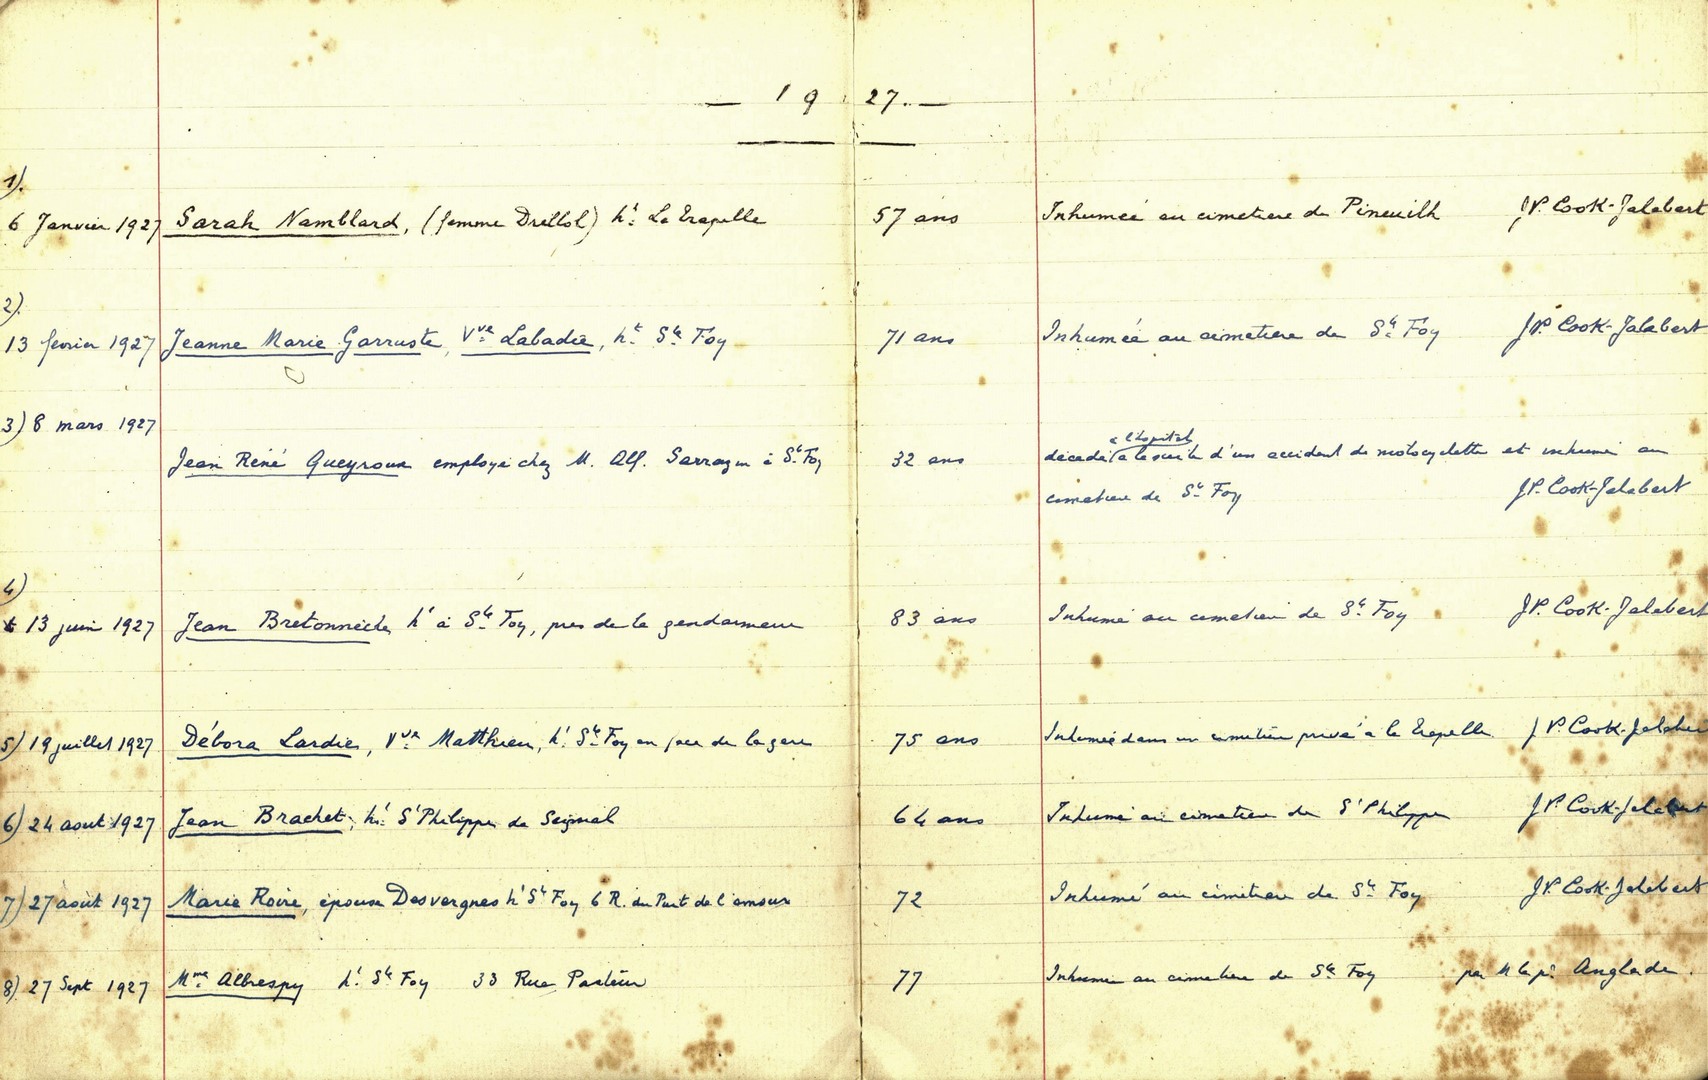 — 1927. —
1).
6 Janvier 1927 Sarah Namblard, (femme Drellol) ht La Trapelle 57 ans Inhumée au cimetiere de Pineuilh JP. Cook-Jalabert
2).
13 fevrier 1927 Jeanne Marie Garruste, Vve Labadie, ht Ste Foy 71 ans Inhumée au cimetiere de Ste Foy JP. Cook-Jalabert
3) 8 mars 1927
à l'hopital
Jean René Queyroux employé chez M. Alf. Sarrazin à Ste Foy 32 ans décédé (a la suite d'un accident de motocyclette et inhumé au
cimetiere de Ste Foy JP. Cook-Jalabert
4)
13 juin 1927 Jean Bretonnèche ht à Ste Foy, pres de la gendarmerie 83 ans Inhumé au cimetiere de Ste Foy JP. Cook-Jalabert
5) 19 juillet 1927 Débora Lardie, Vve Matthieu, ht Ste Foy en face de la gare 75 ans Inhumée dans un cimetière privé à la Trapelle JP. Cook-Jalabert
6) 24 aout 1927 Jean Brachet, ht St Philippe de Seignal 64 ans Inhumé au cimetiere de St Philippe JP. Cook-Jalabert
7) 27 août 1927 Marie Roire, épouse Desvergnes ht Ste Foy 6 R. du Puit de l'amour 72 Inhumé au cimetiere de Ste Foy JP. Cook-Jalabert
8). 27 Sept 1927 Mme Albrespy ht Ste Foy 33 Rue Pasteur 77 Inhumée au cimetiere de Ste Foy par M le pr Anglade.